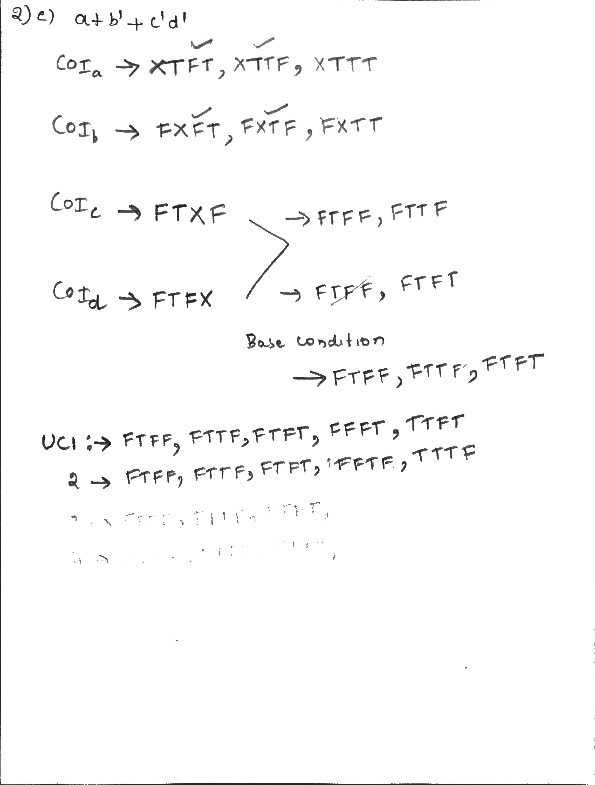 2) c) a+b'+c'd'
COI_a → XTFT, XTTF, XTTT
COI_b → FXFT, FXTF, FXTT
COI_c → FTXF → FTFF, FTTF
COI_d → FTFX → FTFF, FTFT
Base condition
→ FTFF, FTTF, FTFT
UC1 :→ FTFF, FTTF, FTFT, FFFT, TTFT
2 → FTFF, FTTF, FTFT, FFTF, TTTF